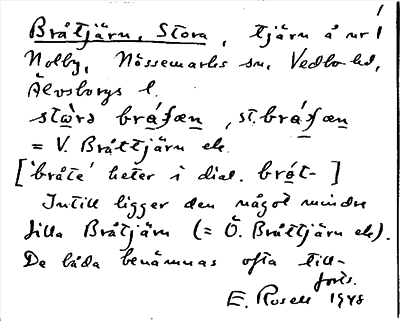 1
Bråtjärn, Stora, tjärn å nr 1
Nolby, Nössemarks sn, Vedbo hd,
Älvsborgs l.
= V. Bråttjärn ek.
['bråte' heter i dial. bråt- ]
Intill ligger den något mindre
Lilla Bråtjärn (= Ö. Bråttjärn ek).
De båda benämnas ofta till-
forts.
E. Rosell 1948